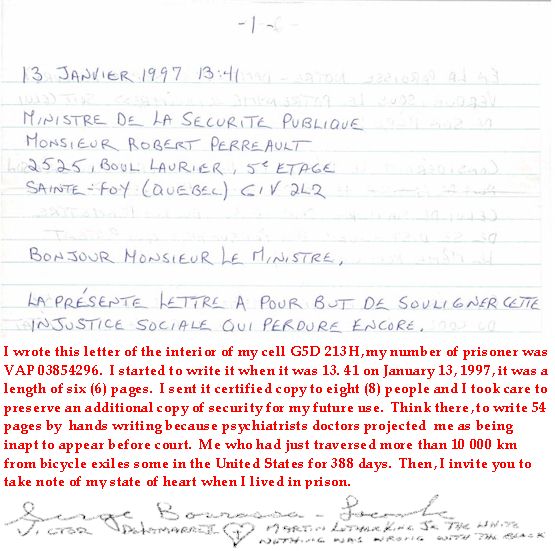 -1-
13 JANVIER 1997 13:41
MINISTRE DE LA SECURITE PUBLIQUE
MONSIEUR ROBERT PERREAULT
2525, BOUL LAURIER, 5e ETAGE
SAINTE-FOY (QUEBEC) G1V 2L2
BONJOUR MONSIEUR LE MINISTRE,
LA PRÉSENTE LETTRE A POUR BUT DE SOULIGNER CETTE
INJUSTICE SOCIALE QUI PERDURE ENCORE.
I wrote this letter of the interior of my cell G5D 213H, my number of prisoner was
VAP 03854296. I started to write it when it was 13. 41 on January 13, 1997, it was a
length of six (6) pages. I sent it certified copy to eight (8) people and I took care to
preserve an additional copy of security for my future use. Think there, to write 54
pages by hands writing because psychiatrists doctors projected me as being
inapt to appear before court. Me who had just traversed more than 10 000 km
from bicycle exiles some in the United States for 388 days. Then, I invite you to
take note of my state of heart when I lived in prison.
Serge Bourassa-
VICTOR MARTIN LUTHER KING JR THE WHITE
NOTHING WAS WRONG WITH THE BLACK